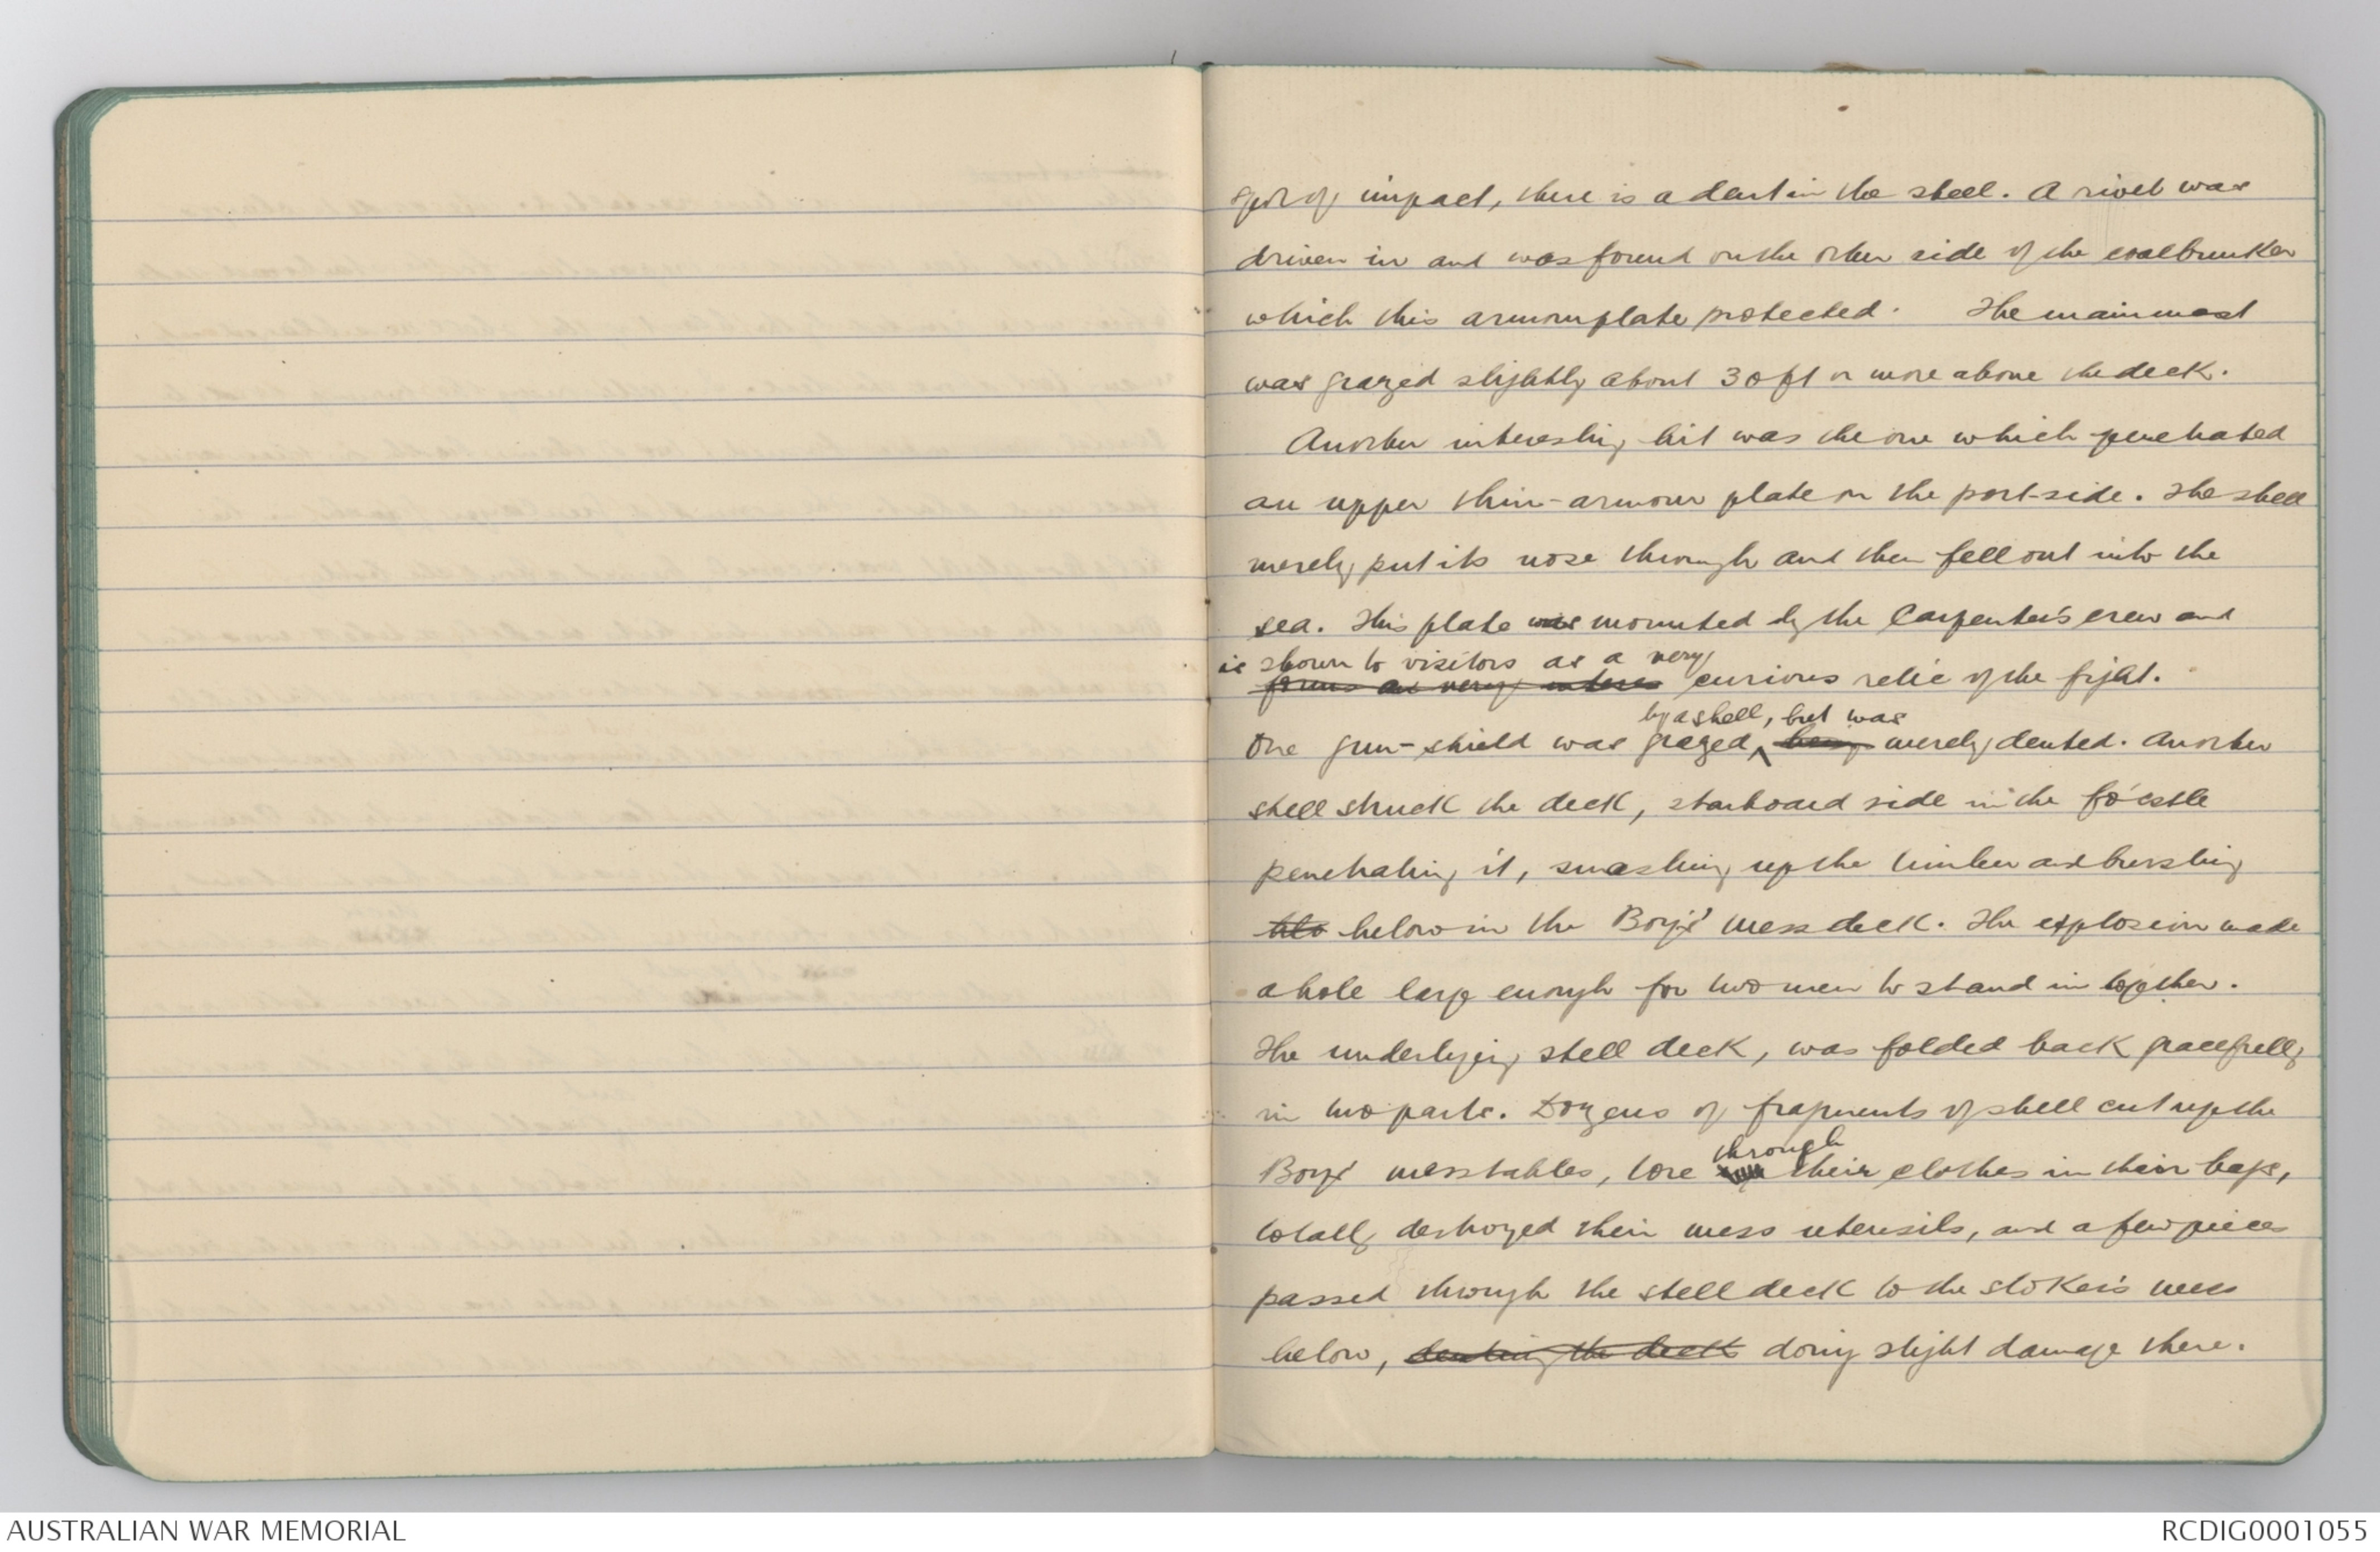 spot of impact, there is a dent in the steel. A rivet was
driven in and was found on the other side of the coalbunker
which this armourplate protected. The mainmast
was grazed slightly about 30 ft or more above the deck.
Another interesting hit was the one which penetrated
an upper thin-armour plate on the port-side. The shell
merely put its nose through and then fell out into the
sea. This plate was mounted by the Carpenter's crew and
is shown to visitors as a very
forms an very interes curious relic of the fight.
by a shell, but was
One gun-shield was grazed, being merely dented. Another
shell struck the deck, starboard side in the fo'castle
penetrating it, smashing up the timber and bursting
below in the Boys' mess deck. The explosion made
a hole large enough for two men to stand in together.
The underlying steel deck, was folded back gracefully
in two parts. Dozens of fragments of shell cut up the
through
Boys' messtables, tore their clothes in their bags,
totally destroyed their mess utensils, and a few pieces
passed through the steel deck to the stoker's mess
below, denting the deck doing slight damage there.
AUSTRALIAN WAR MEMORIAL
RCDIG0001055